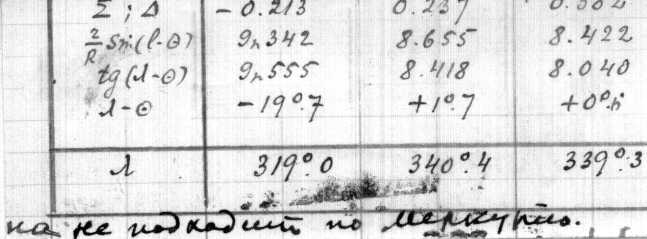 Σ ; Δ -0.213 0.237
r/R Sin(l-⊙) 9n342 8.655 8.422
tg(λ-⊙) 9n555 8.418 8.040
λ-⊙ -19°.7 +1°.7
λ 319°.0 340°.4 339°.3
на не подходит по Меркурию.